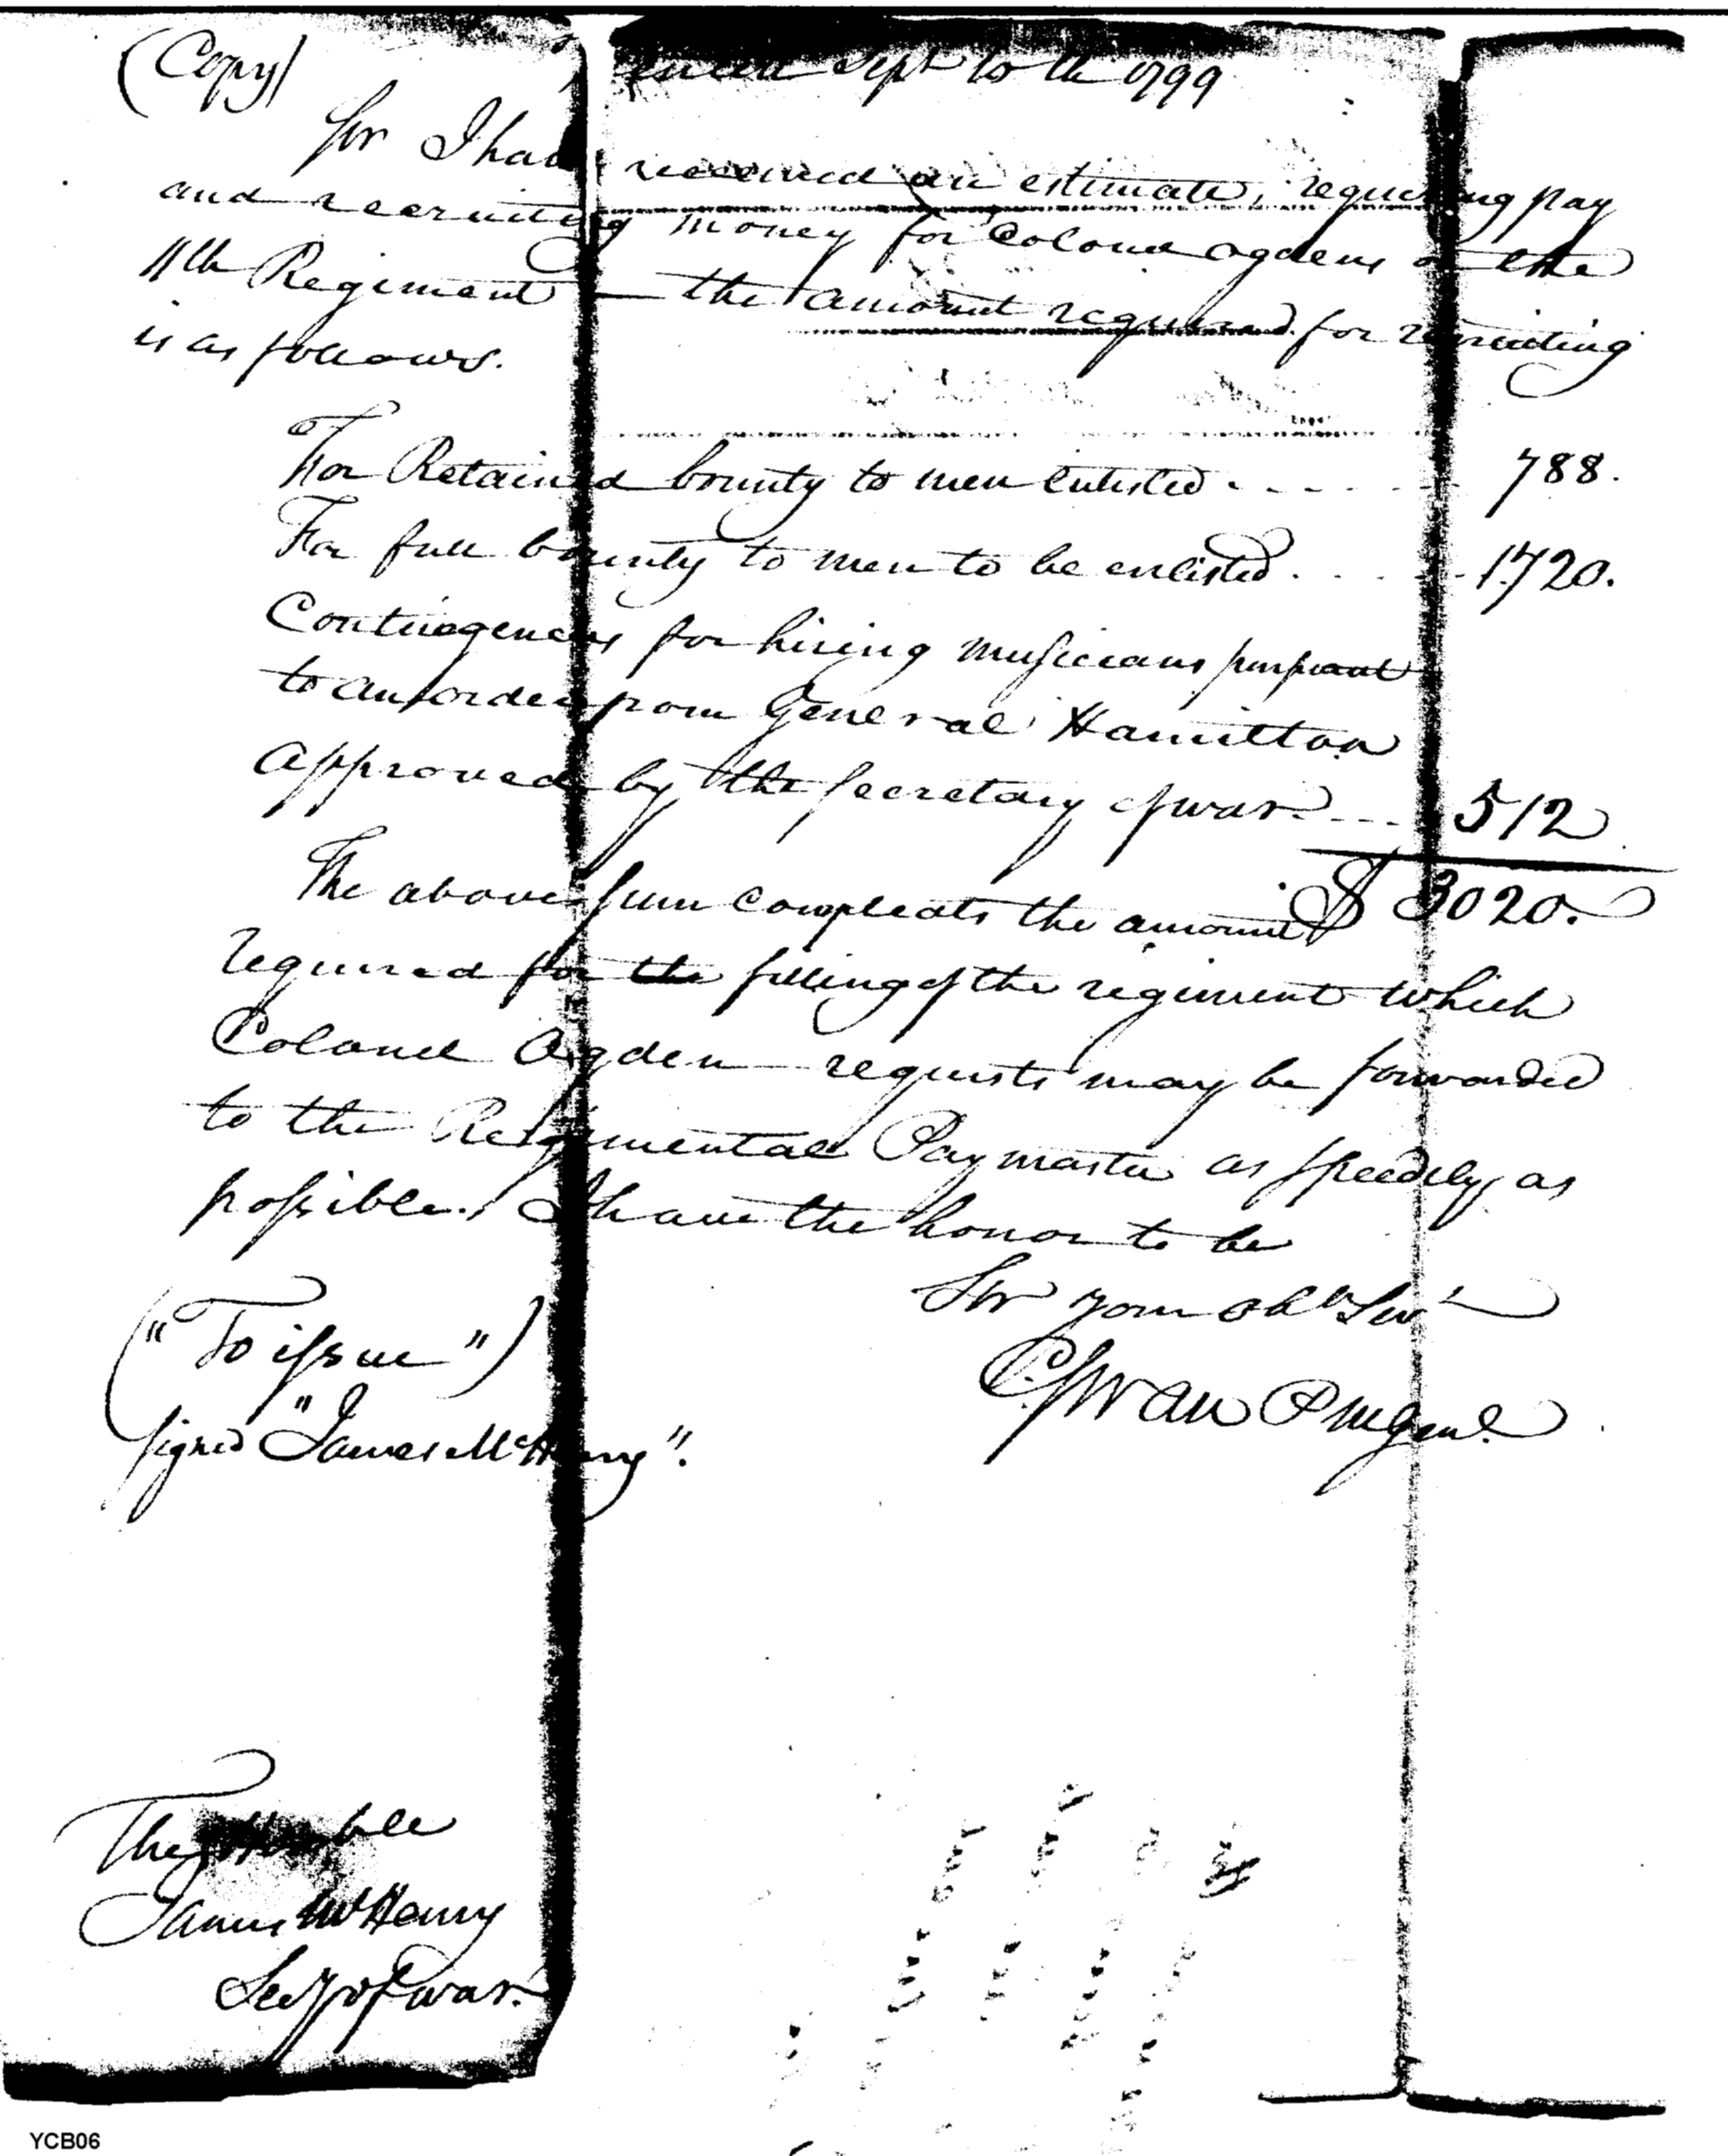 (Copy)
Sept 10th 1799
Sir I have received an estimate, requiring pay
and recruiting money for Colonel Ogdens or the
11th Regiment — the amount required for recruiting
is as follows.
For Retained bounty to men enlisted - - - - 788.
For full bounty to men to be enlisted. . . . . 1720.
Contingencies for hiring musicians pursuant
to an order from General Hamilton
approved by the Secretary of war - - - - 512
$ 3020.
The above sum compleats the amount
required for the filling of the regiment which
Colonel Ogden requests may be forwarded
to the Regimental Paymaster as speedily as
possible. I have the honor to be
Sir your Obt Servt
C Swan PMGenl.
("To issue")
signed "James McHenry".
The Honble
James McHenry
Secy of war.
YCB06